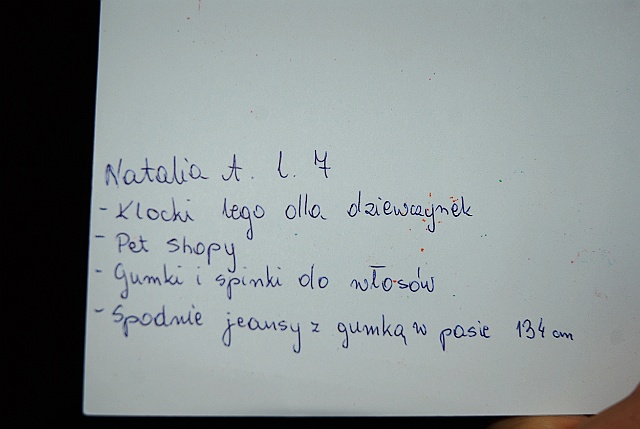 Natalia A. l. 7
- Klocki lego dla dziewczynek
- Pet shopy
- Gumki i spinki do włosów
- Spodnie jeansy z gumką w pasie 134 cm